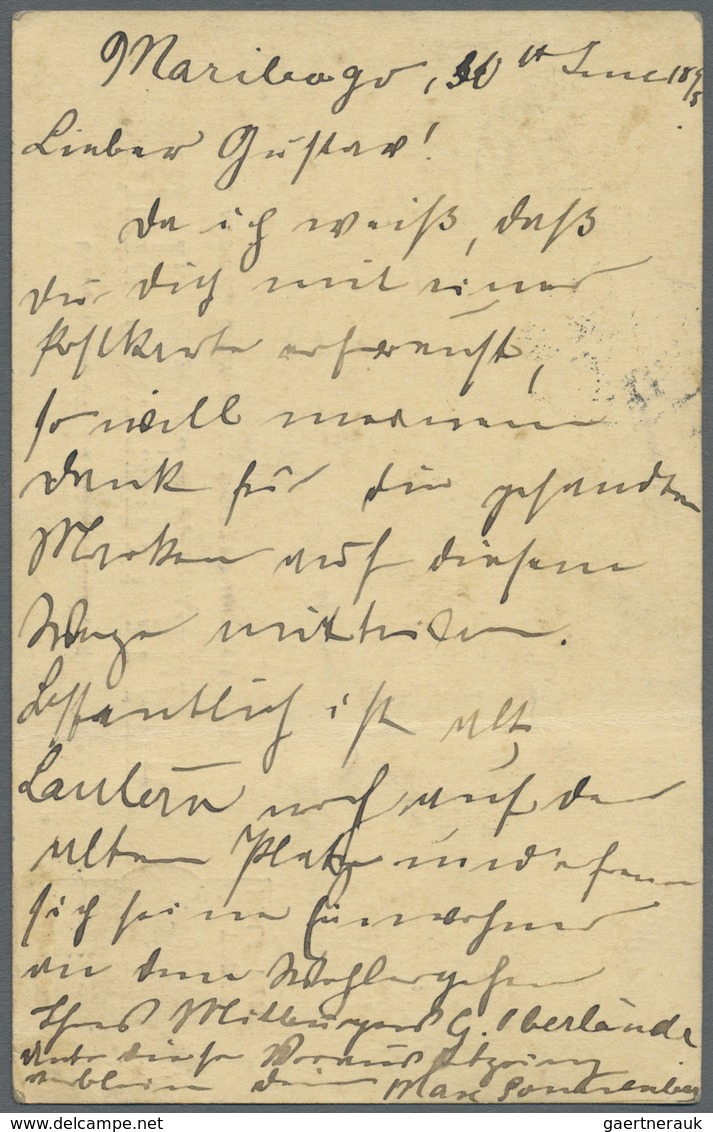 Maribago, 30th June 1895
Lieber Gustav!
Da ich weiß, daß
du dich mit einer
Postkarte erfreust,
so will meinem
Dank für die gesandten
Marken auf diesem
Wege mitteilen.
Hoffentlich ist alt
Lautern noch auf der
alten Platz und erfreuen
sich seine Einwohner
an dem Wohlergehen
Ihres Mitbürgers G. Oberlände
Unter dieser Voraussetzung
verbleibe Dein Max Sonnenberg
gaertnerauk